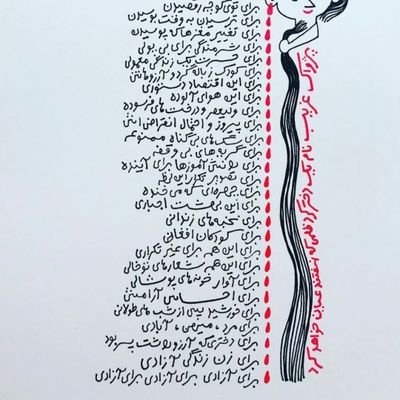 برای توی کوچه رقصیدن
برای ترسیدن به وقت بوسیدن
برای تغییر مغزها که پوسیدن
برای شرمندگی برای بی پولی
برای حسرت یک زندگی معمولی
برای کودک زباله گرد و آرزوهاش
برای این اقتصاد دستوری
برای این هوای آلوده
برای ولیعصر و درخت های فرسوده
برای پیروز و احتمال انقراضش
برای سگ های بی گناه ممنوعه
برای گریه های بی وقفه
برای دانش آموزها برای آینده
برای تصویر تکرار این لحظه
برای چهره ای که می خنده
برای این بهشت اجباری
برای نخبه های زندانی
برای کودکان افغانی
برای این همه برای غیر تکراری
برای این همه شعارهای توخالی
برای آوار خونه های پوشالی
برای احساس آرامش
برای خورشید پس از شب های طولانی
برای مرد ، میهن ، آبادی
برای دختری که آرزو داشت پسر بود
برای زن زندگی آزادی
برای آزادی برای آزادی برای آزادی
پژواک غریب نام یک دختر کرد ظلمی که نهفتند عیان خواهد کرد